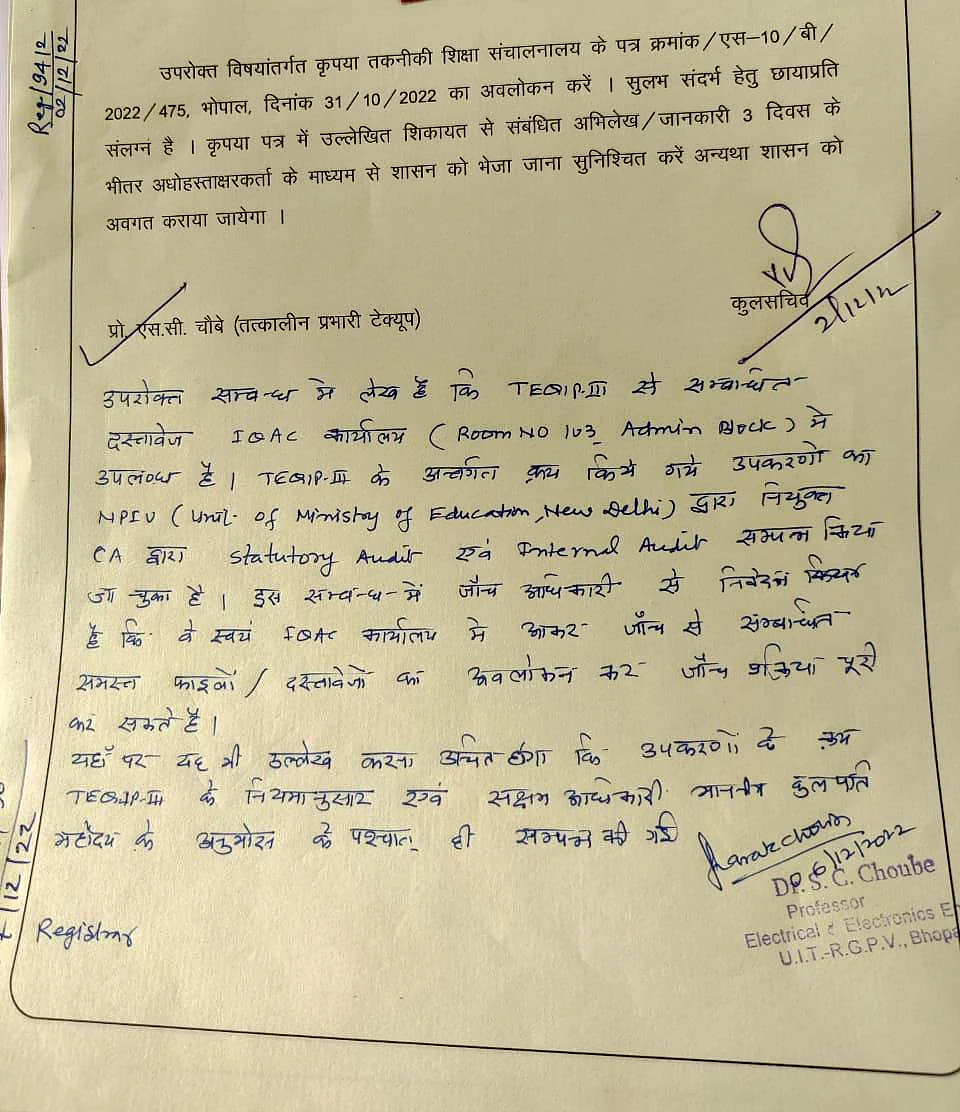 Reg/942
02/12/22
उपरोक्त विषयांतर्गत कृपया तकनीकी शिक्षा संचालनालय के पत्र क्रमांक/एस–10/बी/
2022/475, भोपाल, दिनांक 31/10/2022 का अवलोकन करें । सुलभ संदर्भ हेतु छायाप्रति
संलग्नं है । कृपया पत्र में उल्लेखित शिकायत से संबंधित अभिलेख/जानकारी 3 दिवस के
भीतर अधोहस्ताक्षरकर्ता के माध्यम से शासन को भेजा जाना सुनिश्चित करें अन्यथा शासन को
अवगत कराया जायेगा ।
कुलसचिव
2/12/22
प्रो. एस.सी. चौबे (तत्कालीन प्रभारी टेक्यूप)
उपरोक्त सम्बन्ध मे लेख है कि TEQIP-III से सम्बन्धित
दस्तावेज IQAC कार्यालय (Room NO 103, Admin Block) मे
उपलब्ध है । TEQIP-III के अन्तर्गत क्रय किये गये उपकरणों का
NPIU (Unit of Ministry of Education, New Delhi) द्वारा नियुक्त
CA द्वारा Statutory Audit एवं Internal Audit सम्पन्न किया
जा चुका है । इस सम्बन्ध में जाँच अधिकारी से निवेदन
है कि वे स्वयं IQAC कार्यालय मे आकर जाँच से संम्बन्धित
समस्त फाइलों/दस्तावेजों का अवलोकन कर जाँच प्रक्रिया पूरी
कर सकते है ।
यहाँ पर यह भी उल्लेख करना उचित होगा कि उपकरणों के क्रय
TEQIP-III के नियमानुसार एवं सक्षम अधिकारी माननीय कुलपति
महोदय के अनुमोदन के पश्चात् ही सम्पन्न की गई
6/12/2022
Dr. S. C. Choube
Professor
Electrical & Electronics E
U.I.T.-R.G.P.V., Bhopa
/12/22
Registrar